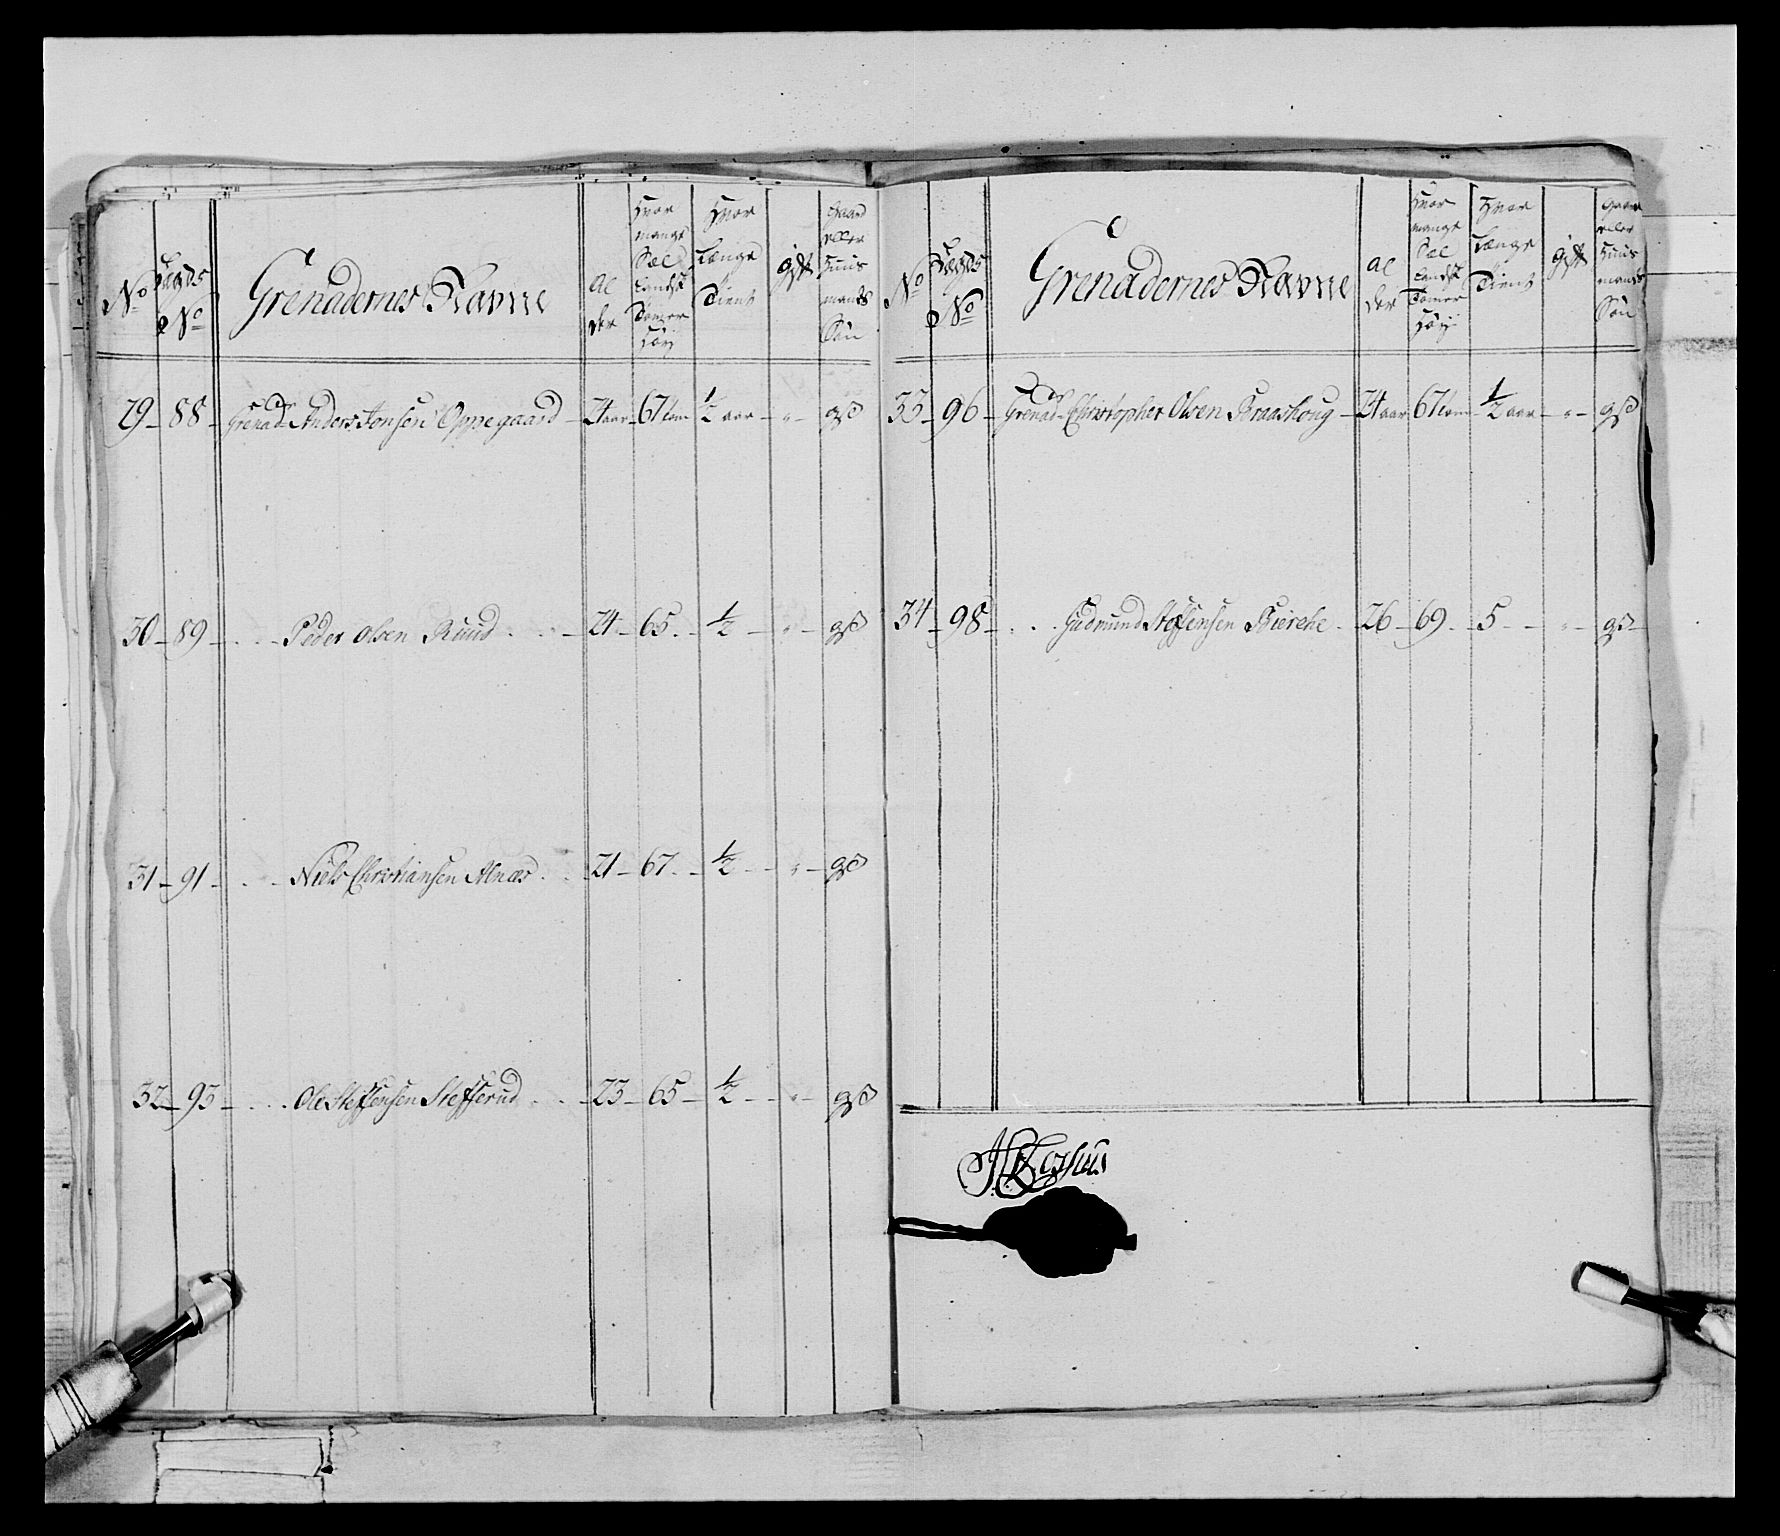 No
Lægds No
Grenadernes Navne
Alder
Hvor mange Sæl Landsk Tomer Høÿ
Hvor Længe Tient
gift
Gaard eller Huus mands Søn
29 - 88 - Grenad - Anders Jonsen Oppegaard - 24 aar - 67 tom - 1/2 aar - " - gs
30 - 89 - Peder Olsen Ruud - 24 - 65 - 1/2 - " - gs
31 - 91 - Niels Christiansen Alnæs - 21 - 67 - 1/2 - " - gs
32 - 93 - Ole Steffensen Stefferud - 23 - 65 - 1/2 - " - gs
No
Lægds No
Grenadernes Navne
Alder
Hvor mange Sæl Landsk Tomer Høÿ
Hvor Længe Tient
gift
Gaard eller Huus mands Søn
33 - 96 - Grenad - Christopher Olsen Kraashoug - 24 aar - 67 tom - 1/2 aar - " - gs
34 - 98 - Gudmund Stefensen Bierche - 26 - 69 - 5 - " - gs